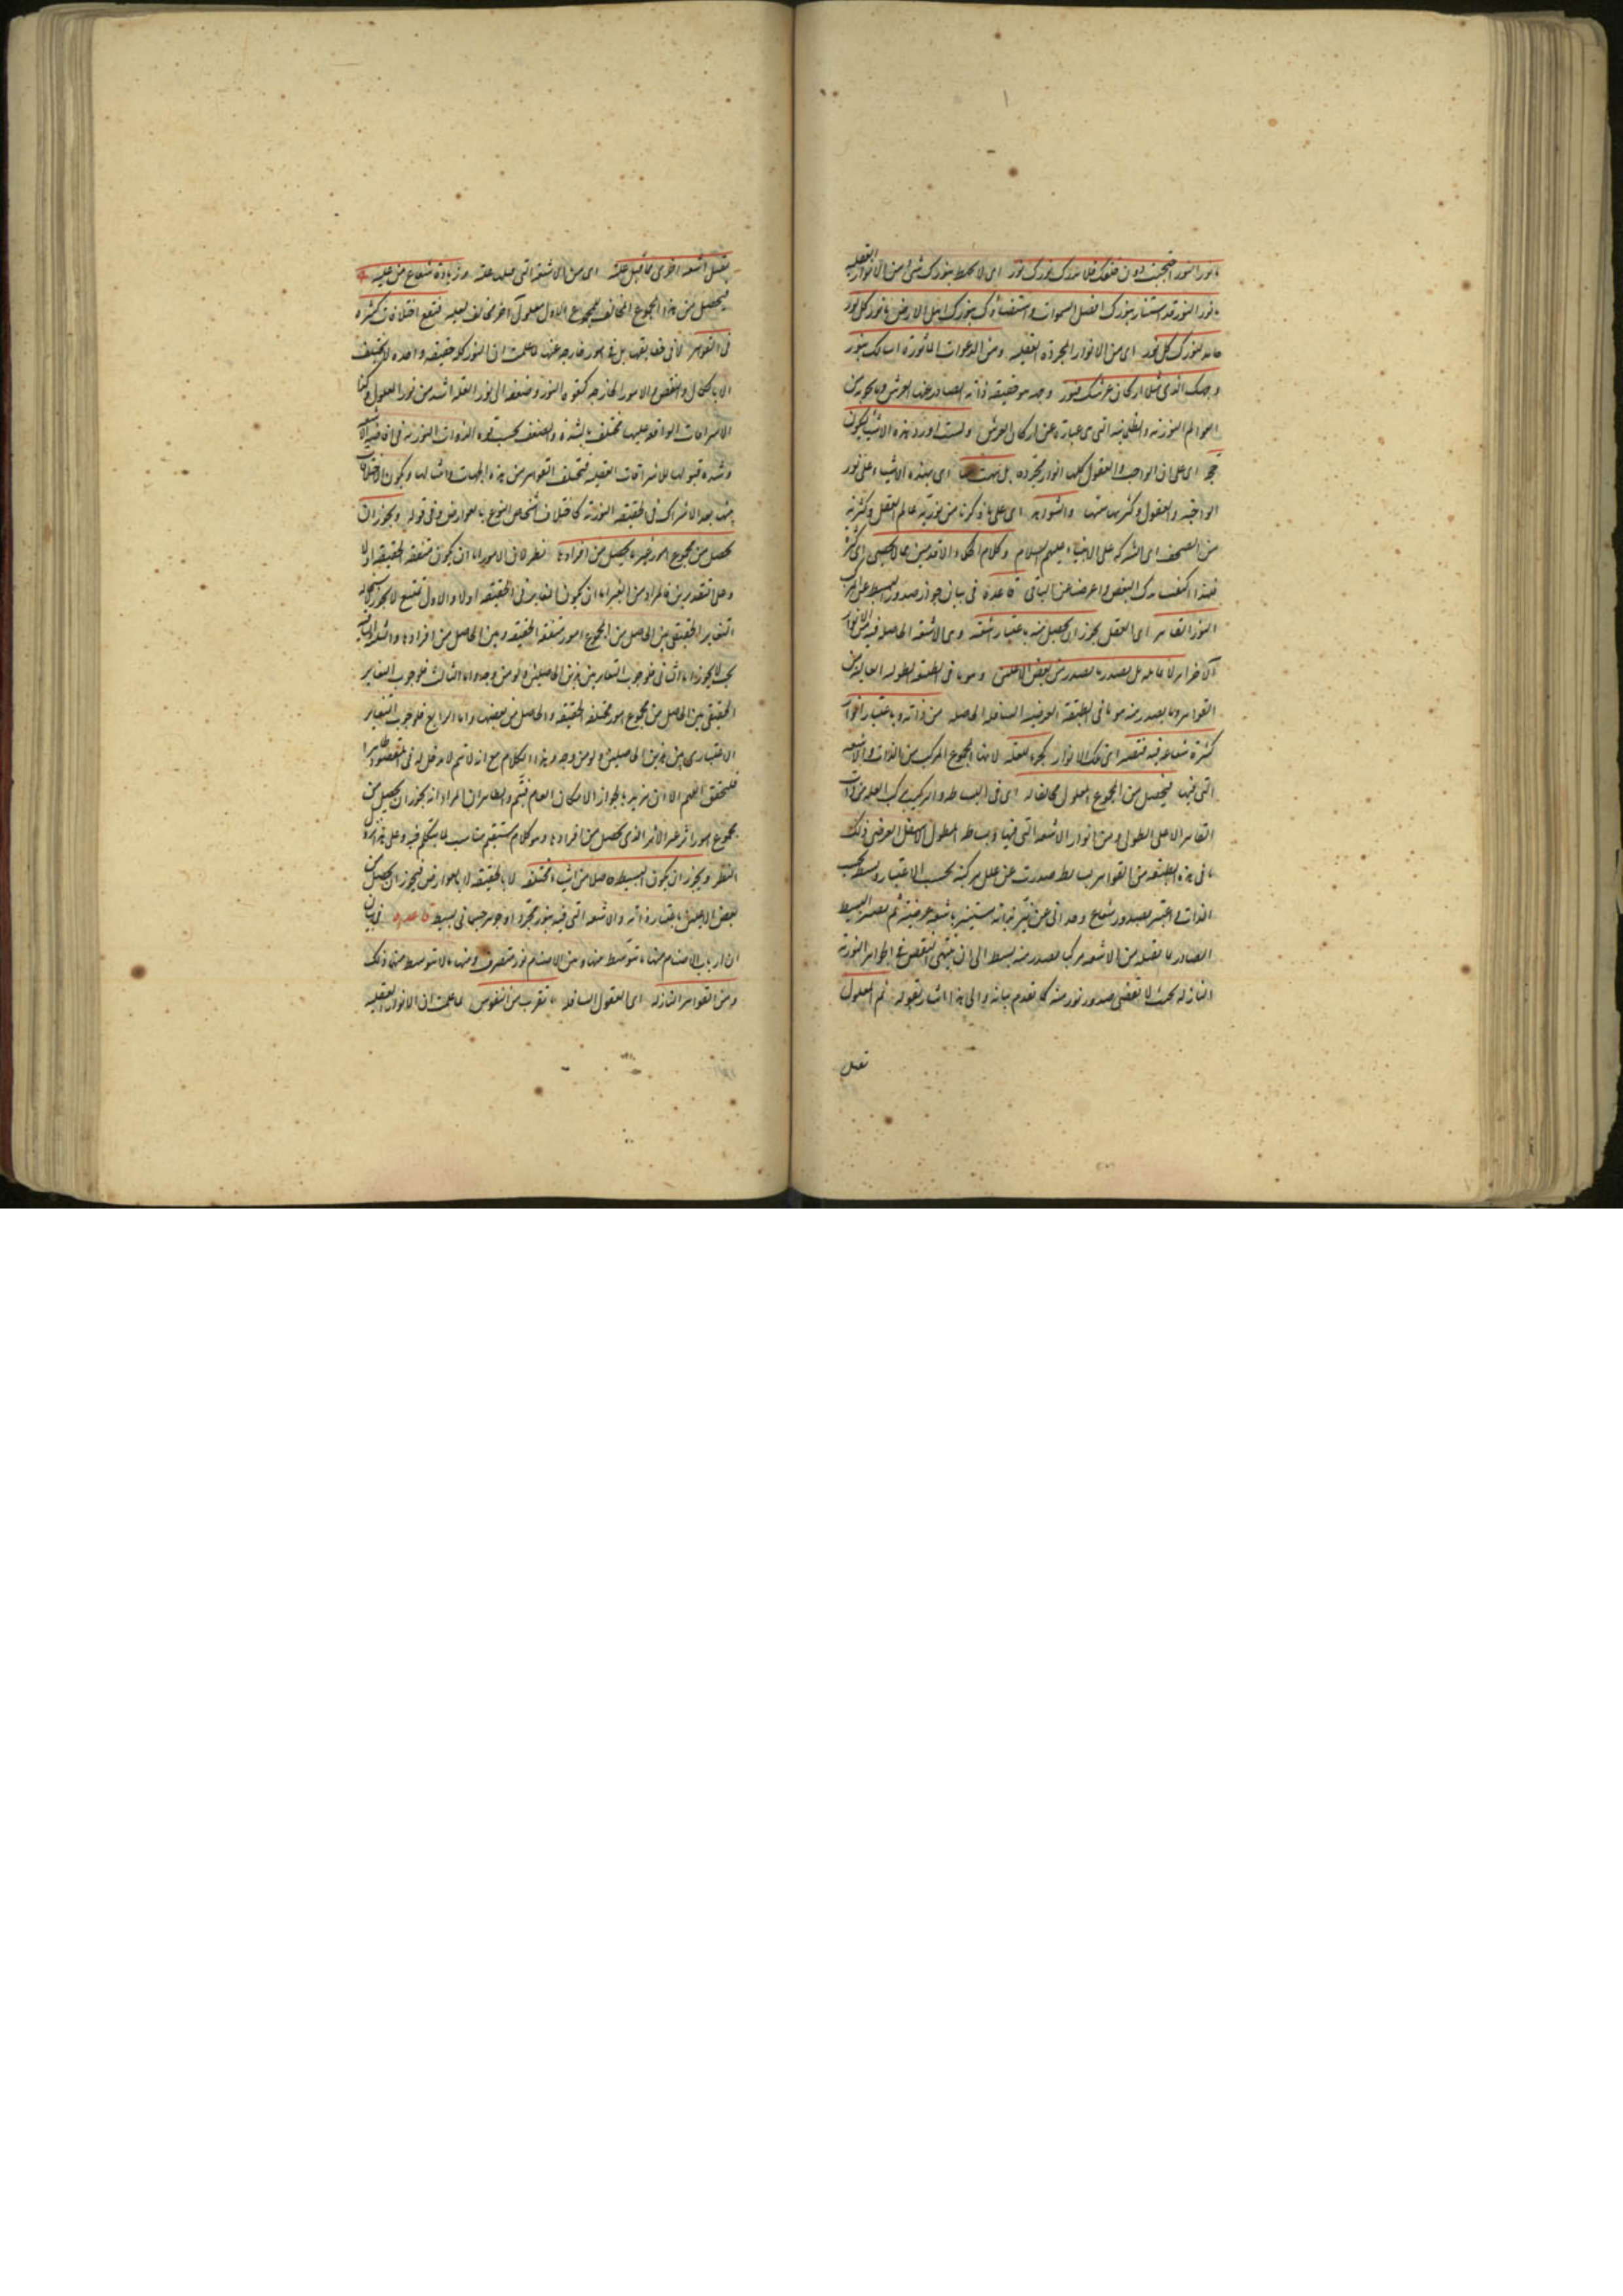 يا نور النور احتجبت دون خلقك فلا يدرك نورك نور اى لا يحيط بنورك شئ من الانوار العقلية
يا نور النور قد استنار بنورك اهل السموات واستضاء بنورك اهل الارض يا نور كل نور
خامد لنورك كل نور اى من الانوار المجردة العقلية ومن الدعوات الماثورة اسالك بنور
وجهك الذى ملأ اركان عرشك فنور وجهه هو حقيقة ذاته الصادر عنها العرش وما يحويه من
العوالم النورية والظلمانية التى هى عبارة عن اركان العرش ولست اورد هذه الاشياء ليكون
حجة اى على ان الواجب والعقول كلها انوار مجردة بل نبهت بها اى بهذه الاشياء على نور
الواجب والعقول وكثرتها منها والشواهد اى على ما ذكرنا من نورية عالم العقل وكثرته
من الصحف اى المنزلة على الانبياء عليهم السلام وكلام الحكماء الاقدمين مما لا يحصى اى كثرة
فلهذا اكتفيت بذكر البعض واعرضنا عن الباقى قاعدة فى بيان جواز صدور البسيط عن المركب
النور القاهر اى العقل يجوز ان يحصل منه باعتبار اشعته وهى الاشعة الحاصلة فيه من الانوار
الاخر امر لا يماثله بل يصدر ما يصدر من بعض الاعلين وهو ما فى الطبقة الطولية العالية من
القواهر وما يصدر منه هو ما فى الطبقة العرضية السافلة الحاصلة من ذاته وباعتبار انوار
كثيرة شعاعية فيه فتصير اى تلك الانوار كجزء للعلة لانها المجموع المركب من الذات والاشعة
التى فيها فيحصل من المجموع المعلول مخالفا له اى فى البساطة والتركيب لتركب العلة من ذات
القاهر الاعلى الطولى ومن انوار الاشعة التى فيها وبساطة المعلول الاسفل العرضى وذلك
ما فى هذه الطبقة من القواهر بسائط صدرت عن علل مركبة بحسب الاعتبار وبسيطة بحسب
الذات واعتبر بصدور شعاع وحدانى عن نير بذاته مستنير باشعة عرضية ثم يصير البسيط
الصادر بما يقبله من الاشعة مركبا يصدر منه بسيط الى ان ينتهى النقص فى الجواهر النورية
النازلة بحيث لا يقتضى صدور نور منه كما تقدم بيانه والى هذا اشار بقوله ثم المعلول
يقبل
يقبل اشعة اخرى مما قبل علته اى من الاشعة التى قبلها علته وزيادة شعاع من علته
فيحصل من هذا المجموع المخالف للمجموع الاول معلول آخر مخالف لعلته فيقع اختلافات كثيرة
فى القواهر لا فى حقايقها بل فى امور خارجة عنها لما علمت ان النور كله حقيقة واحدة لا يختلف
الا بالكمال والنقص والامور الخارجة كقوة النور وضعفه اذ نور العلة اشد من نور المعلول وكذا
الاشراقات الواقعة عليها تختلف بالشدة والضعف بحسب قوة الذوات النورية فى افاضة الاشعة
وشدة قبولها للاشراقات العقلية فيختلف القواهر من هذه الجهات وامثالها ويكون الاختلاف
بينها بعد الاشتراك فى الحقيقة النورية كاختلاف اشخاص النوع بالعوارض وفى قوله ويجوز ان
يحصل من مجموع امور غير ما يحصل من افرادها نظر لان الامور اما ان يكون متفقة الحقيقة او لا
وعلى التقديرين فالمراد من الغير اما ان يكون المغاير فى الحقيقة اولا والاول ممتنع لا يجوز لاستحالة
التغاير الحقيقى بين الحاصل من المجموع امور متفقة الحقيقة وبين الحاصل من افرادها والثلثة الباقية
يجب لا يجوز اما الثانى فلوجوب التغاير بين هذين الحاصلين ولو من وجه واما الثالث فلوجوب التغاير
الحقيقى بين الحاصل من مجموع امور مختلفة الحقيقة والحاصل من بعضها واما الرابع فلوجوب التغاير
الاعتبارى بين هذين الحاصلين ولو من وجه وهذا الكلام مع انه لا يتم لا دخل له فى المقصود ظاهرا
فليحقق اللهم الا ان يريد بالجواز الامكان العام فيتم والظاهر ان المراد انه يجوز ان يحصل من
مجموع امور اثر غير الاثر الذى يحصل من افرادها وهو كلام مستقيم مناسب لما يتكلم فيه وعلى هذا يسقط
النظر ويجوز ان يكون البسيط حاصلا من اشياء مختلفة لا بالحقيقة بل بالعوارض فيجوز ان يحصل من
بعض الاعلين باعتبار ذاته والاشعة التى فيه نور مجرد او جوهر جسمانى بسيط قاعدة فى بيان
ان ارباب الاصنام منها ما يتوسط بينها وبين الاصنام نور متصرف ومنها ما لا يتوسط بينها ذلك
ومن القواهر النازلة اى العقول السافلة ما تقرب من النفوس لما علمت ان الانوار العقلية